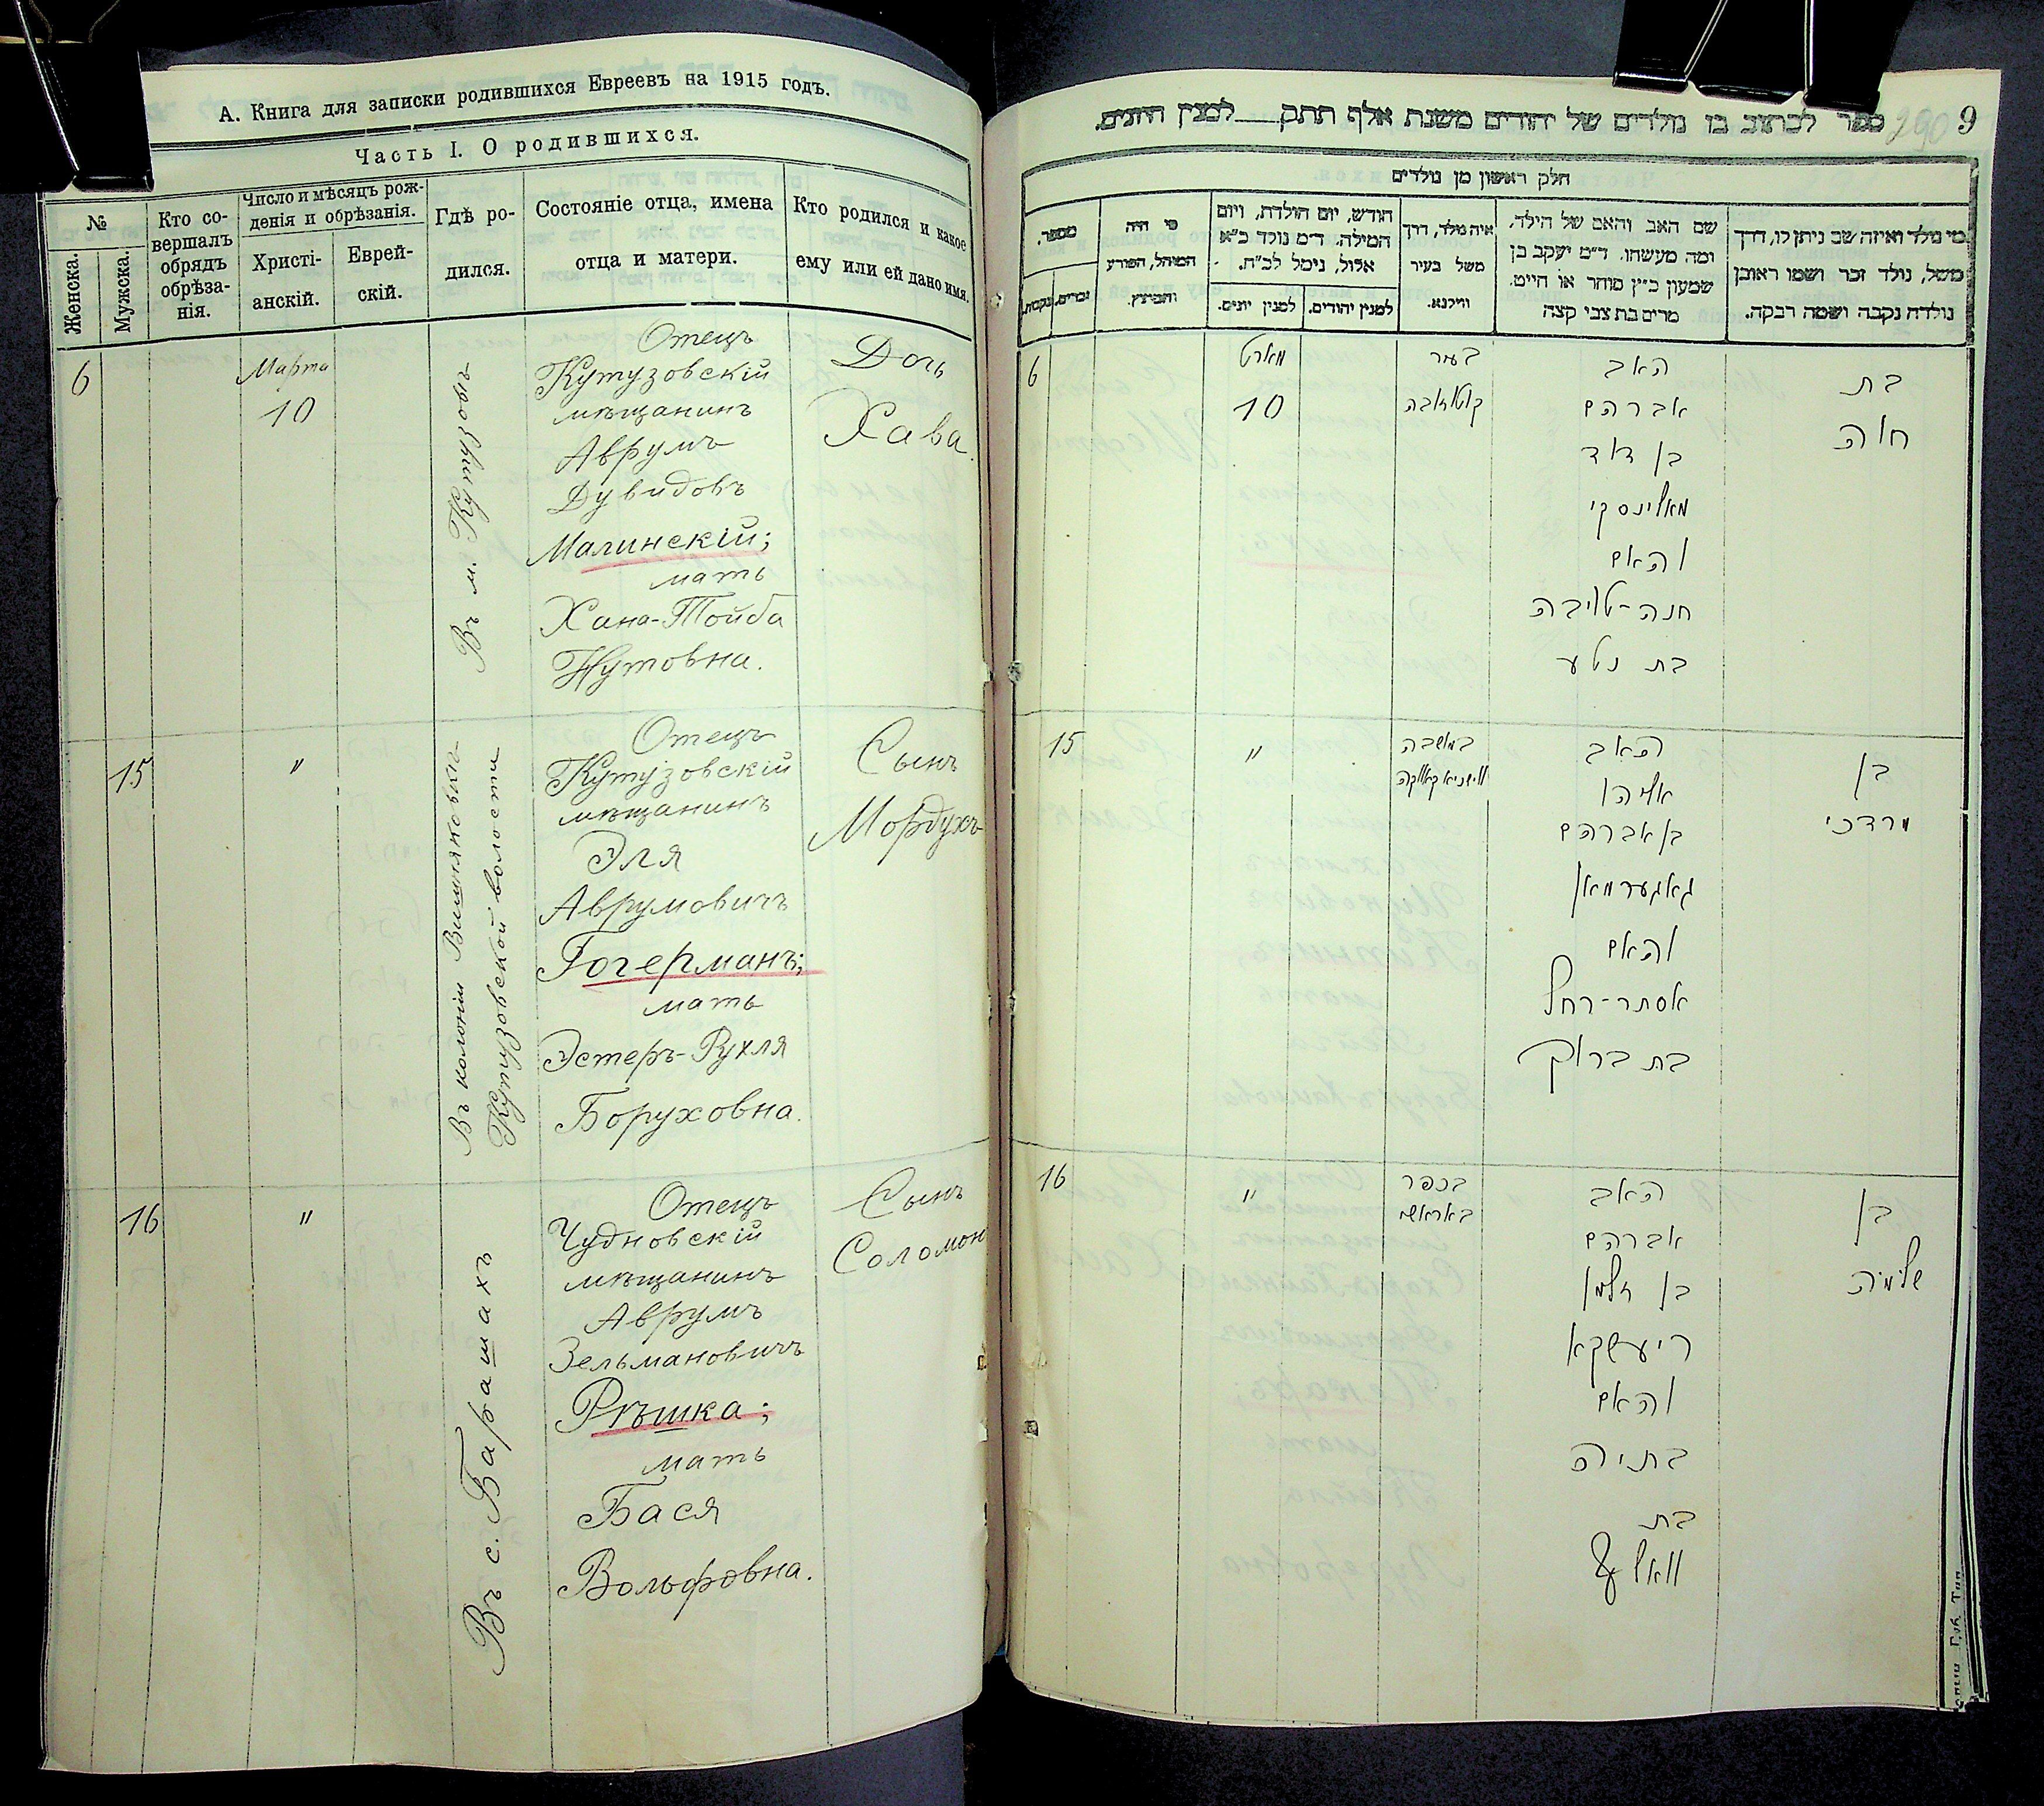 А. Книга для записки родившихся Евреевъ на 1915 годъ.
Часть I. О родившихся.
№
Женска.
Мужска.
Кто со-
вершалъ
обрядъ
обрѣза-
нія.
Число и мѣсяцъ рож-
денія и обрѣзанія.
Христі-
анскій.
Еврей-
скій.
Гдѣ ро-
дился.
Состояніе отца, имена
отца и матери.
Кто родился и какое
ему или ей дано имя.
6
Марта
10
Въ м. Кутузовъ
Отецъ
Кутузовскій
мѣщанинъ
Аврумъ
Дувидовъ
Малинскій;
мать
Хана-Тойба
Нутовна.
Дочь
Хава.
15
"
Въ колоніи Вишняковкѣ
Кутузовской волости
Отецъ
Кутузовскій
мѣщанинъ
Эля
Аврумовичъ
Гогерманъ;
мать
Эстеръ-Рухля
Боруховна.
Сынъ
Мордухъ
16
"
Въ с. Барашахъ
Отецъ
Чудновскій
мѣщанинъ
Аврумъ
Зельмановичъ
Рѣшка;
мать
Бася
Вольфовна.
Сынъ
Соломон
290 9
ספר לכתוב בו נולדים של יהודים משנת אלף תתק למנין היונים.
חלק ראשון מן נולדים
מי נולד ואיזה שם ניתן לו, דרך
משל, נולד זכר ושמו ראובן
נולדה נקבה ושמה רבקה.
שם האב והאם של הילד,
ומה מעשהו. ד״מ יעקב בן
שמעון כ״ץ סוחר או חייט.
מרים בת צבי קצה
איה נולד, דרך
משל בעיר
ווילנא.
חודש, יום הולדת, ויום
המילה. ד״מ נולד כ״א
אלול, נימל לכ״ח.
למנין יהודים.
למנין יונים.
מי היה
המוהל, הפורע
והמוצץ.
מספר.
זכרים.
נקבות.
בת
חוה
האב
אברהם
בן דוד
מאלינסקי
והאם
חנה-טויבה
בת נטע
בעיר
קוטוזובה
מארט
10
6
בן
מרדכי
האב
אליהו
בן אברהם
גאגערמאן
והאם
אסתר-רחל
בת ברוך
במושבה
ווישניאקאווקה
"
15
בן
שלמה
האב
אברהם
בן זלמן
ריעשקא
והאם
בתיה
בת
וואלף
בכפר
באראשי
"
16